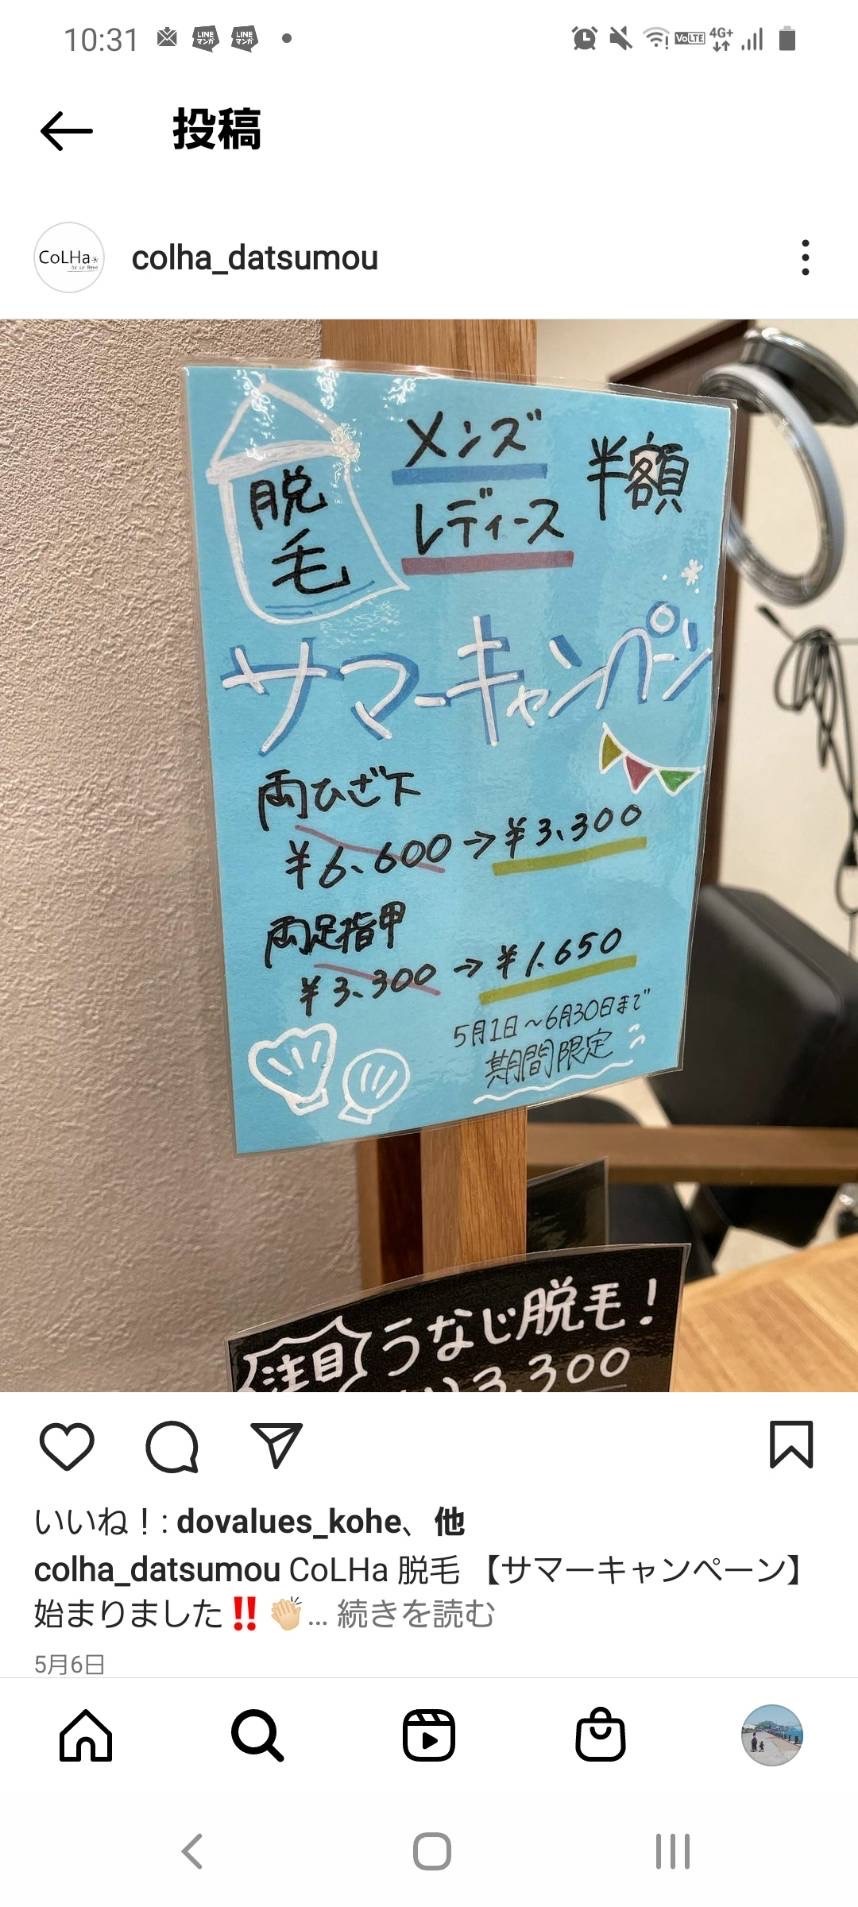 10:31
LINE マンガ
LINE マンガ
VoLTE 4G+
投稿
CoLHa
colha_datsumou
脱毛
メンズ
レディース
半額
サマーキャンペーン
両ひざ下
¥6,600→¥3,300
両足指甲
¥3,300→¥1,650
5月1日~6月30日まで
期間限定
注目 うなじ脱毛!
3,300
いいね!: dovalues_kohe、他
colha_datsumou CoLHa 脱毛 【サマーキャンペーン】
始まりました‼️👏🏻... 続きを読む
5月6日